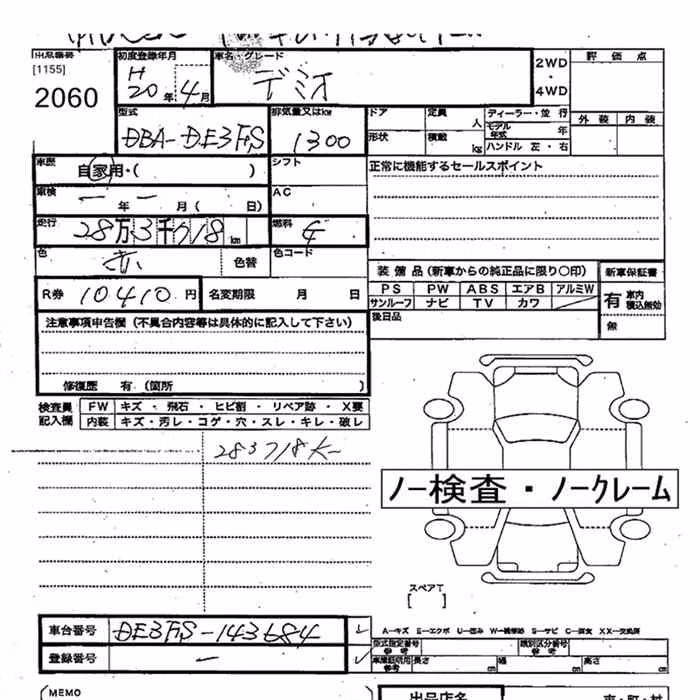 出品番号 初度登録年月 車名・グレード 評価点
[1155] H 2WD
2060 20年4月 デミオ ・
4WD
型式 排気量又はkw ドア 定員 人 ディーラー・並行 外装 内装
DBA-DE3FS 1300 形状 積載 kg モデル年式 年
ハンドル 左・右
車歴 自家用・( ) シフト 正常に機能するセールスポイント
車検 ー年ー月( 日) AC
走行 28万3千718km 燃料 G
色 赤 色替 色コード
装備品(新車からの純正品に限り○印) 新車保証書
R券 10410円 名変期限 月 日 PS PW ABS エアB アルミW 有 車内 積込無効
サンルーフ ナビ TV カワ
注意事項申告欄(不具合内容等は具体的に記入して下さい) 後日品 無
修復歴 有(箇所 )
検査員 FW キズ・飛石・ヒビ割・リペア跡・X要
記入欄 内装 キズ・汚レ・コゲ・穴・スレ・キレ・破レ
283718K
ノー検査・ノークレーム
スペアT
[ ]
車台番号 DE3FS-143684 A-キズ E-エクボ U-凹み W-補修跡 S-サビ C-腐食 XX-交換済
型式指定番号 参考 類別区分番号 参考
登録番号 ー 車庫証明用 参考 長さ cm 幅 cm 高さ cm
MEMO 出品店名 市・町・村